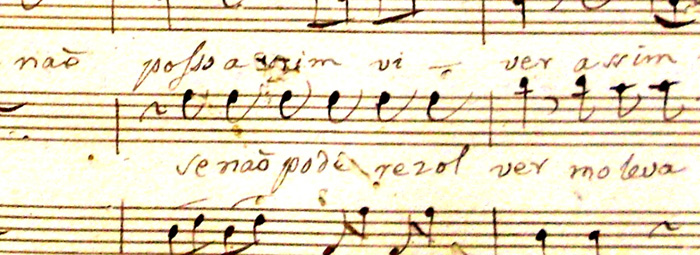 não posso assim vi - ver assim
se não pode rezol ver mo leva